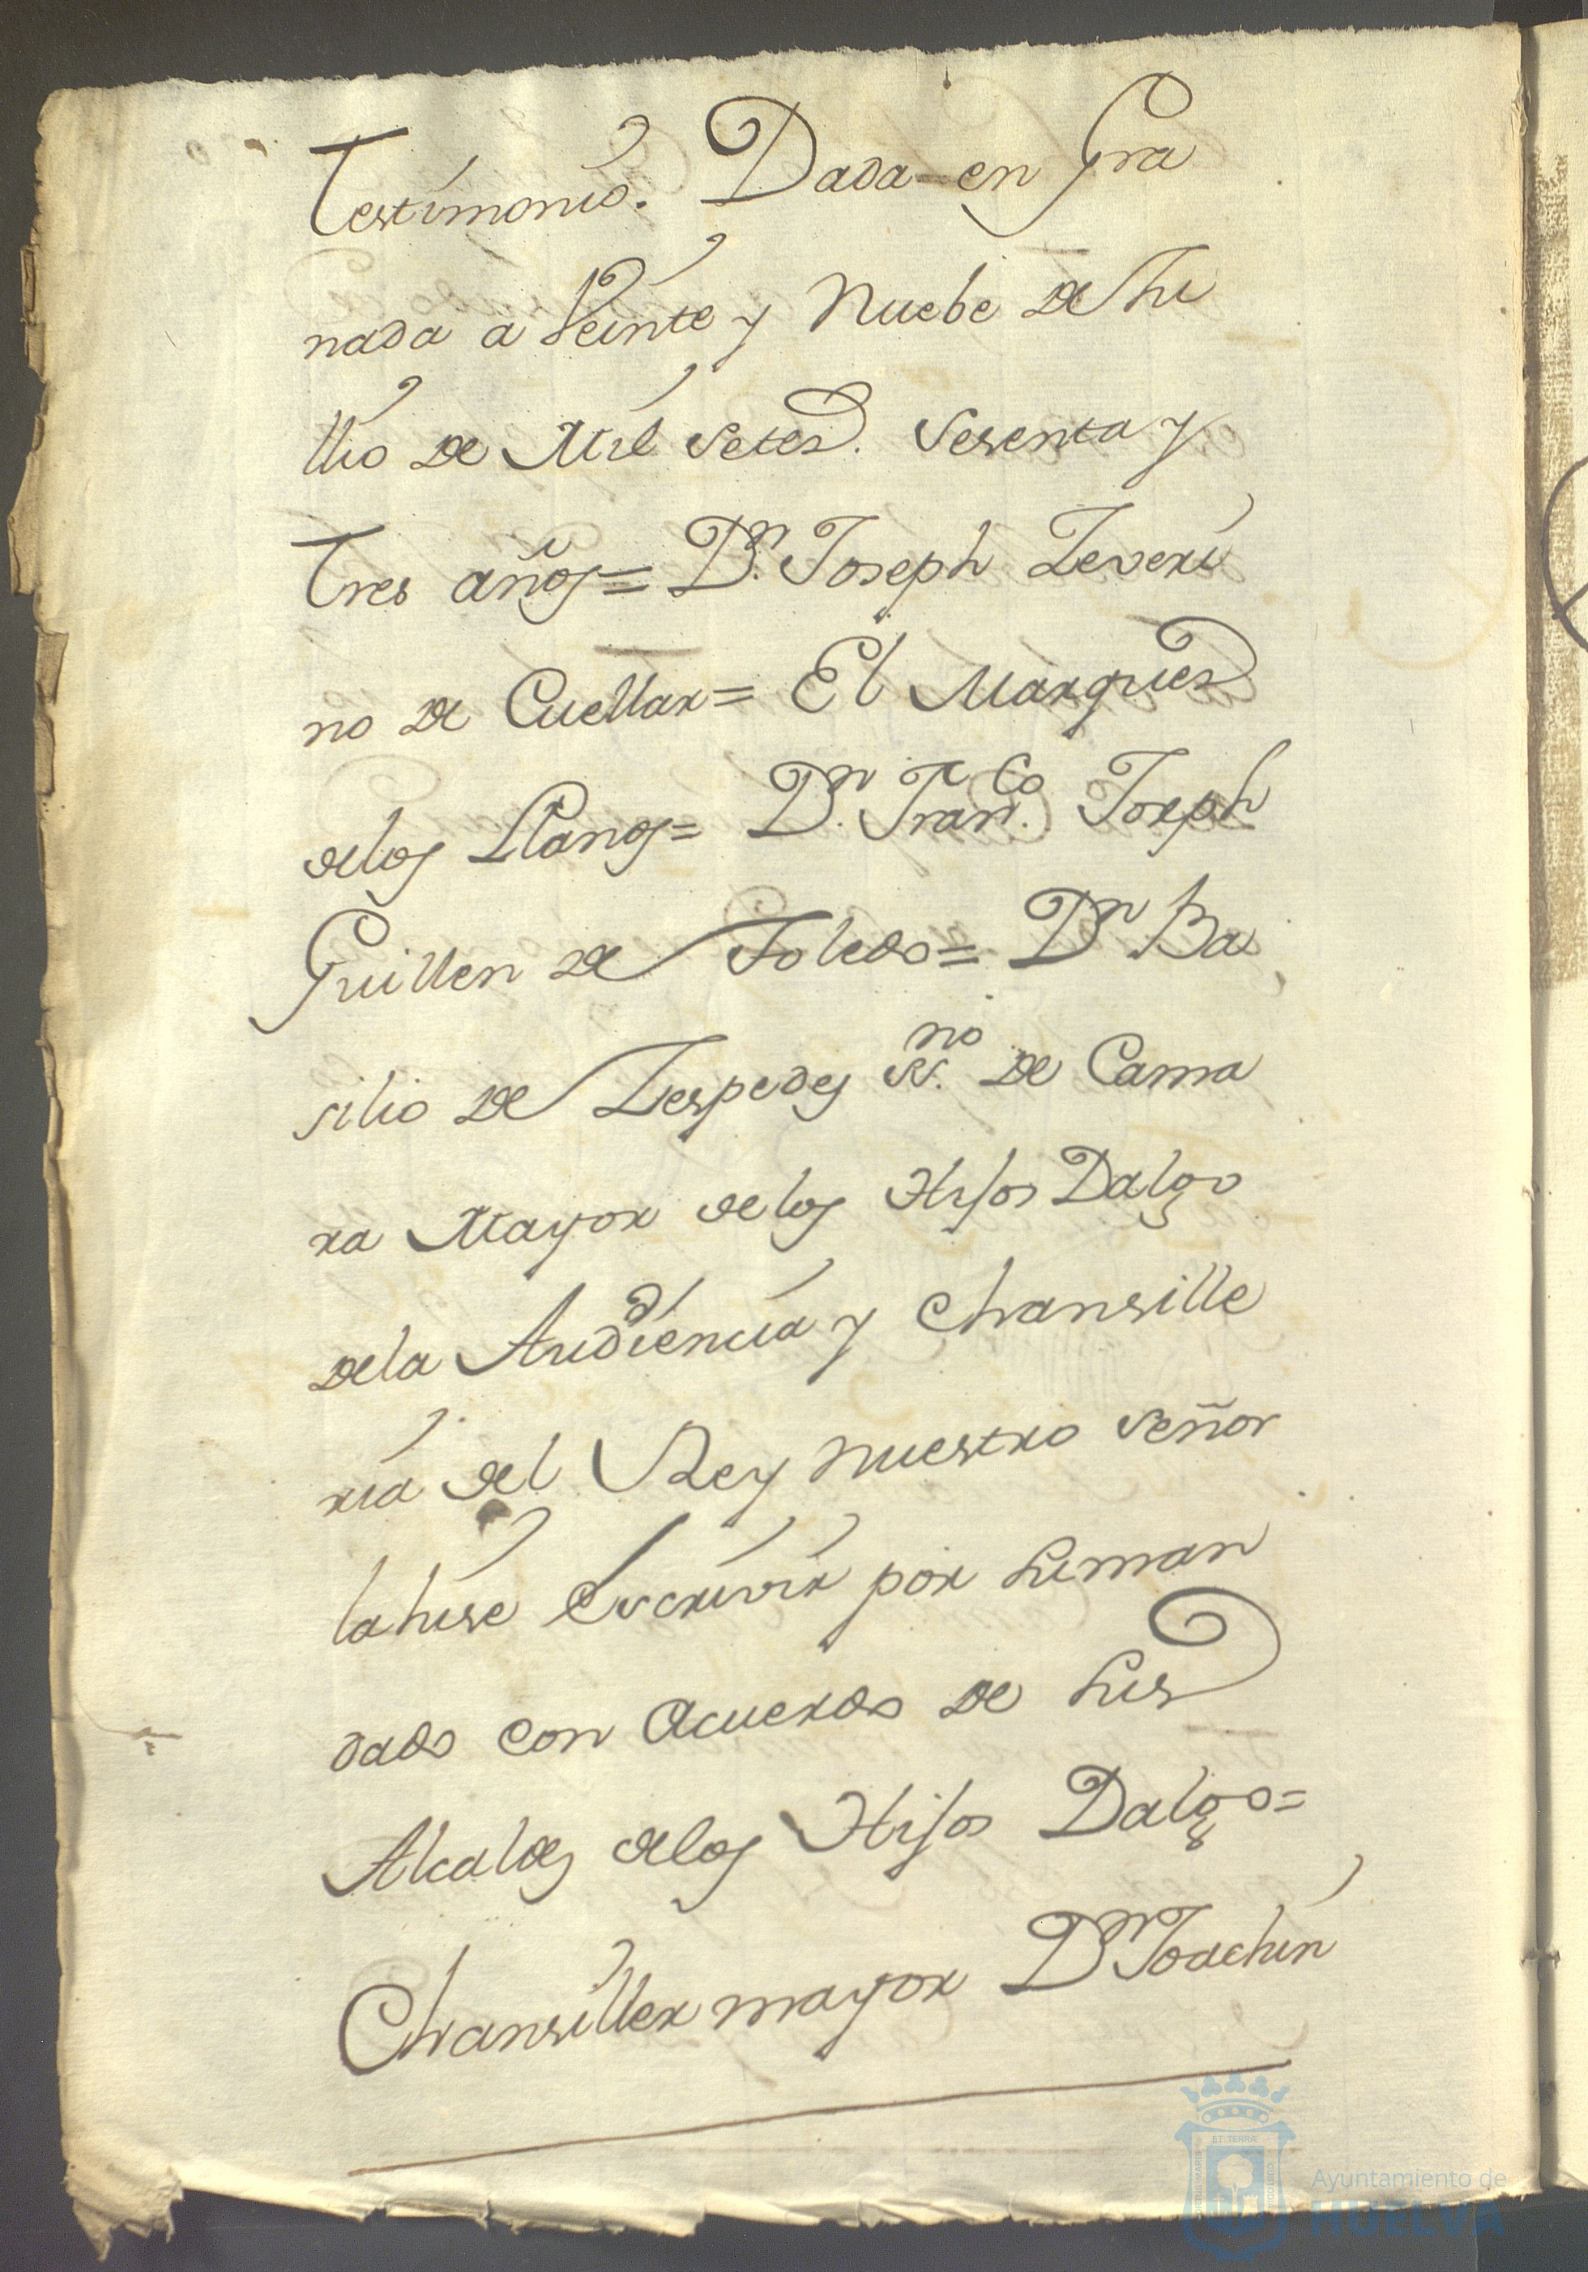 Testimonio. Dada en Gra
nada a Veinte y Nuebe de Ju
llio de Mil Seteos. Sesenta y
tres años = Dn. Joseph Zeveri
no de Cuellar = El Marques
delos Llanos = Dn. Franco. Joseph
Guillen de Toledo = Dn Ba
silio de Zespedes SSno. de Cama
ra Mayor delos Hijos Dalgo
dela Audiencia y Chansille
ria del Rey nuestro Señor
lahise Escrivir por suman
dado con Acuerdo de sus
Alcaldes delos Hijos Dalgo =
Chansiller mayor Dn Joachin
ET TERRÆ
Ayuntamiento de
HUELVA